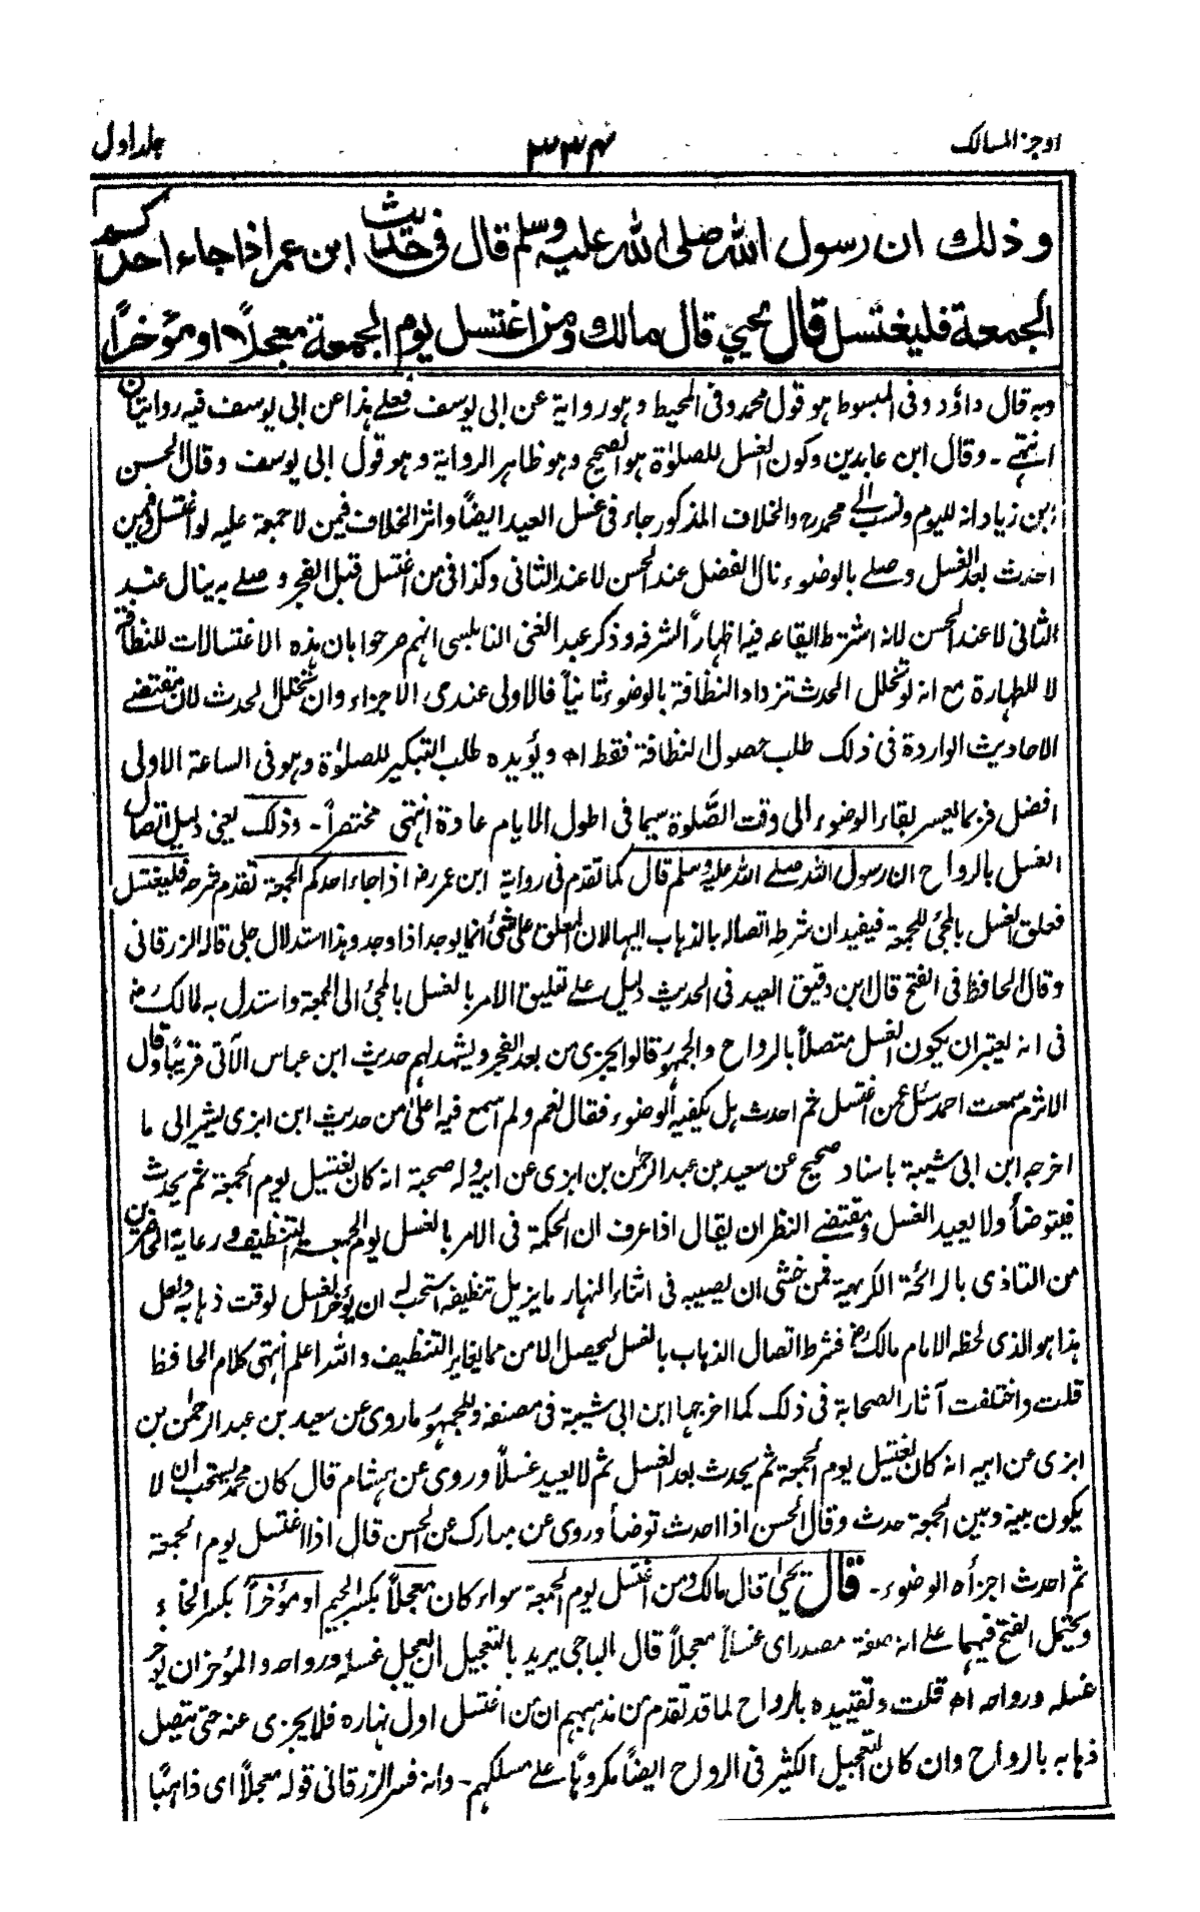 اوجز المسالك ٣٣٤ جلد اول
وذلك ان رسول الله صلى الله عليه وسلم قال فى حديث ابن عمر اذا جاء احدكم
الجمعة فليغتسل قال يحيى قال مالك ومن اغتسل يوم الجمعة معجلاً او مؤخراً
وبه قال داؤد وفى المبسوط هو قول محمد وفى المحيط وهو رواية عن ابى يوسف فعلے هذا عن ابى يوسف فيه روايتان
انتهے ـ وقال ابن عابدين وكون الغسل للصلوٰة هو الصحيح وهو ظاهر الرواية وهو قول ابى يوسف وقال الحسن
ابن زياد انه لليوم ونسب الى محمد والخلاف المذكور جاء فى غسل العيد ايضاً واثر الخلاف فيمن لا جمعة عليه لو اغتسل وفيمن
احدث بعد الغسل وصلے بالوضوء نال الفضل عند الحسن لا عند الثانى وكذا فى من اغتسل قبل الفجر وصلے به ينال عند
الثانى لا عند الحسن لانه اشترط ايقاعه فيه اظهاراً لشرفه وذكر عبد الغنى النابلسى انهم صرحوا بان هذه الاغتسالات للنظافة
لا للطهارة مع انه لو تخلل الحدث تزداد النظافة بالوضوء ثانياً فالاولى عندى الاجزاء وان تخلل الحدث لان مقتضے
الاحاديث الواردة فى ذلك طلب حصول النظافة فقط اھ ويؤيده طلب التبكير للصلوٰة وهو فى الساعة الاولى
افضل فربما يعسر بقاء الوضوء الى وقت الصَّلوٰة سيما فى اطول الايام عادة انتهى مختصراً ـ وذلك يعنى دليل اتصال
الغسل بالرواح ان رسول الله صلے الله عليه وسلم قال كما تقدم فى رواية ابن عمر رض اذا جاء احدكم الجمعة تقدم شرحه فليغتسل
فعلق الغسل بالمجئ للجمعة فيفيد ان شرطه اتصاله بالذهاب اليها لان المعلق على شئ انما يوجد اذا وجد وهذا استدلال جلى قاله الزرقانى
وقال الحافظ فى الفتح قال ابن دقيق العيد فى الحديث دليل علے تعليق الامر بالغسل بالمجئ الى الجمعة واستدل به لمالك رض
فى انه يعتبر ان يكون الغسل متصلاً بالرواح والجمهور قالوا يجزى من بعد الفجر ويشهد لهم حديث ابن عباس الآتى قريباً وقال
الاثرم سمعت احمد سئل عمن اغتسل ثم احدث هل يكفيه الوضوء فقال نعم ولم اسمع فيه اعلىٰ من حديث ابن ابزى يشير الى ما
اخرجه ابن ابى شيبة باسناد صحيح عن سعيد بن عبد الرحمٰن بن ابزى عن ابيه وله صحبة انه كان يغتسل يوم الجمعة ثم يحدث
فيتوضأ ولا يعيد الغسل ومقتضے النظر ان يقال اذا عرف ان الحكمة فى الامر بالغسل يوم الجمعة التنظيف ورعاية الحاضرين
من التاذى بالرائحة الكريهة فمن خشى ان يصيبه فى اثناء النهار ما يزيل تنظيفه استحب له ان يؤخر الغسل لوقت ذهابه ولعل
هذا هو الذى لحظه الامام مالك رض فشرط اتصال الذهاب بالغسل ليحصل الامن مما يغاير التنظيف والله اعلم انتهى كلام الحافظ
قلت واختلفت آثار الصحابة فى ذلك كما اخرجها ابن ابى شيبة فى مصنفه وللجمهور ما روى عن سعيد بن عبد الرحمٰن بن
ابزى عن ابيه انه كان يغتسل يوم الجمعة ثم يحدث بعد الغسل ثم لا يعيد غسلاً وروى عن هشام قال كان محمد يستحب ان لا
يكون بينه وبين الجمعة حدث وقال الحسن اذا احدث توضأ وروى عن مبارك عن الحسن قال اذا اغتسل يوم الجمعة
ثم احدث اجزأه الوضوء ـ قال يحيىٰ قال مالك ومن اغتسل يوم الجمعة سواء كان معجلاً بكسر الجيم او مؤخراً بكسر الخاء
ويحتمل الفتح فيهما علے انه صفة مصدر اى غسلاً معجلاً قال الباجى يريد بالتعجيل ان يعجل غسله ورواحه والمؤخر ان يؤخر
غسله ورواحه اھ قلت وتقييده بالرواح لما قد تقدم من مذهبهم ان من اغتسل اول نهاره فلا يجزى عنه حتى يتصل
ذهابه بالرواح وان كان التعجيل الكثير فى الرواح ايضاً مكروهاً علے مسلكهم ـ وانه فسر الزرقانى قوله معجلاً اى ذاهبًا